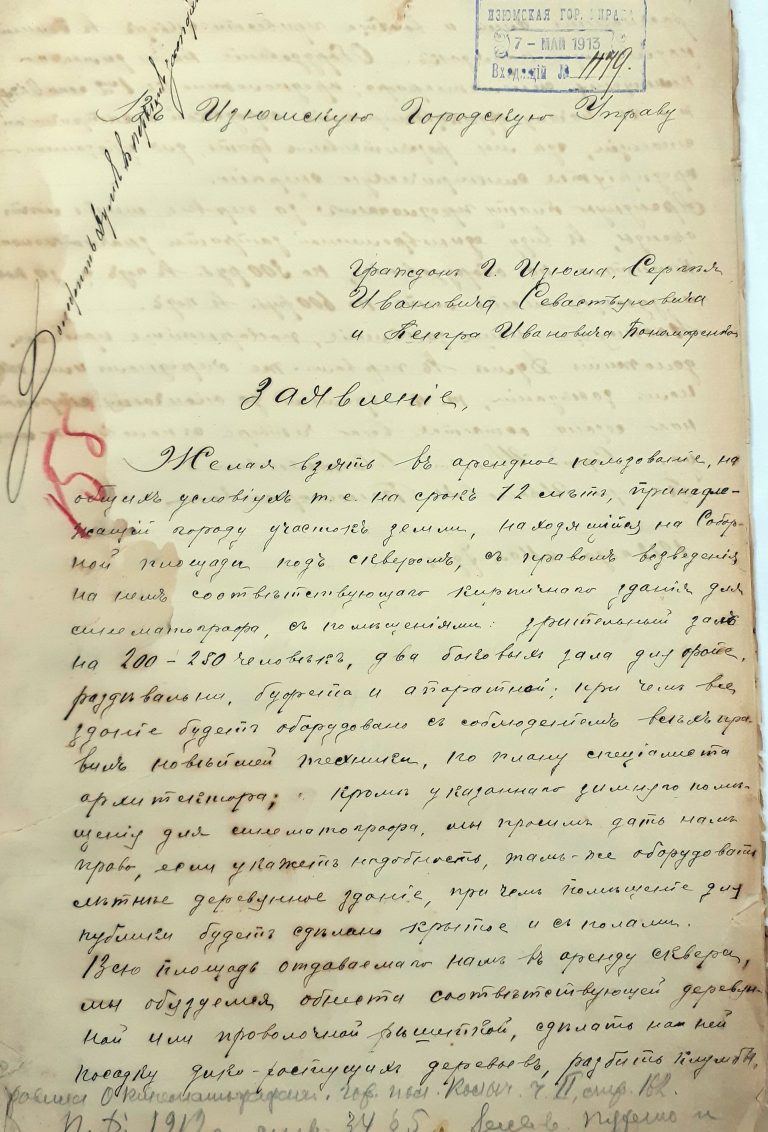 ИЗЮМСКАЯ ГОР. УПРАВА
7 - МАЙ 1913
Входящій № 1179.
Въ Изюмскую Городскую Управу
Гражданъ Г. Изюма, Сергѣя
Ивановича Севастьяновича
и Петра Ивановича Пономаренко
Заявленіе,
155
Желая взять въ арендное пользованіе, на
общихъ условіяхъ т. е. на срокъ 12 лѣтъ, принадле-
жащій городу участокъ земли, находящійся на Собор-
ной площади подъ скверомъ, съ правомъ возведенія
на немъ соотвѣтствующаго кирпичнаго зданія для
синематографа, съ помѣщеніями: зрительный залъ
на 200-250 человѣкъ, два боковыхъ зала для фойе,
раздѣвальни, буфета и апаратной; при чемъ все
зданіе будетъ оборудовано съ соблюденіемъ всѣхъ пра-
вилъ новѣйшей техники, по плану спеціалиста
архитектора; кромѣ указаннаго зимняго помѣ-
щенія для синематографа, мы просимъ дать намъ
право, если укажетъ надобность, тамъ-же оборудовать
лѣтнее деревянное зданіе, при чемъ помѣщеніе для
публики будетъ сдѣлано крытое и съ полами.
Всю площадь отдаваемаго намъ въ аренду сквера,
мы обязуемся обнести соотвѣтствующей деревян-
ной или проволочной рѣшеткой, сдѣлать на ней
посадку дико-ростущихъ деревьевъ, разбить клумбы,
О кинематографахъ. Гор. пол. ч. II, стр. 162.
34 65